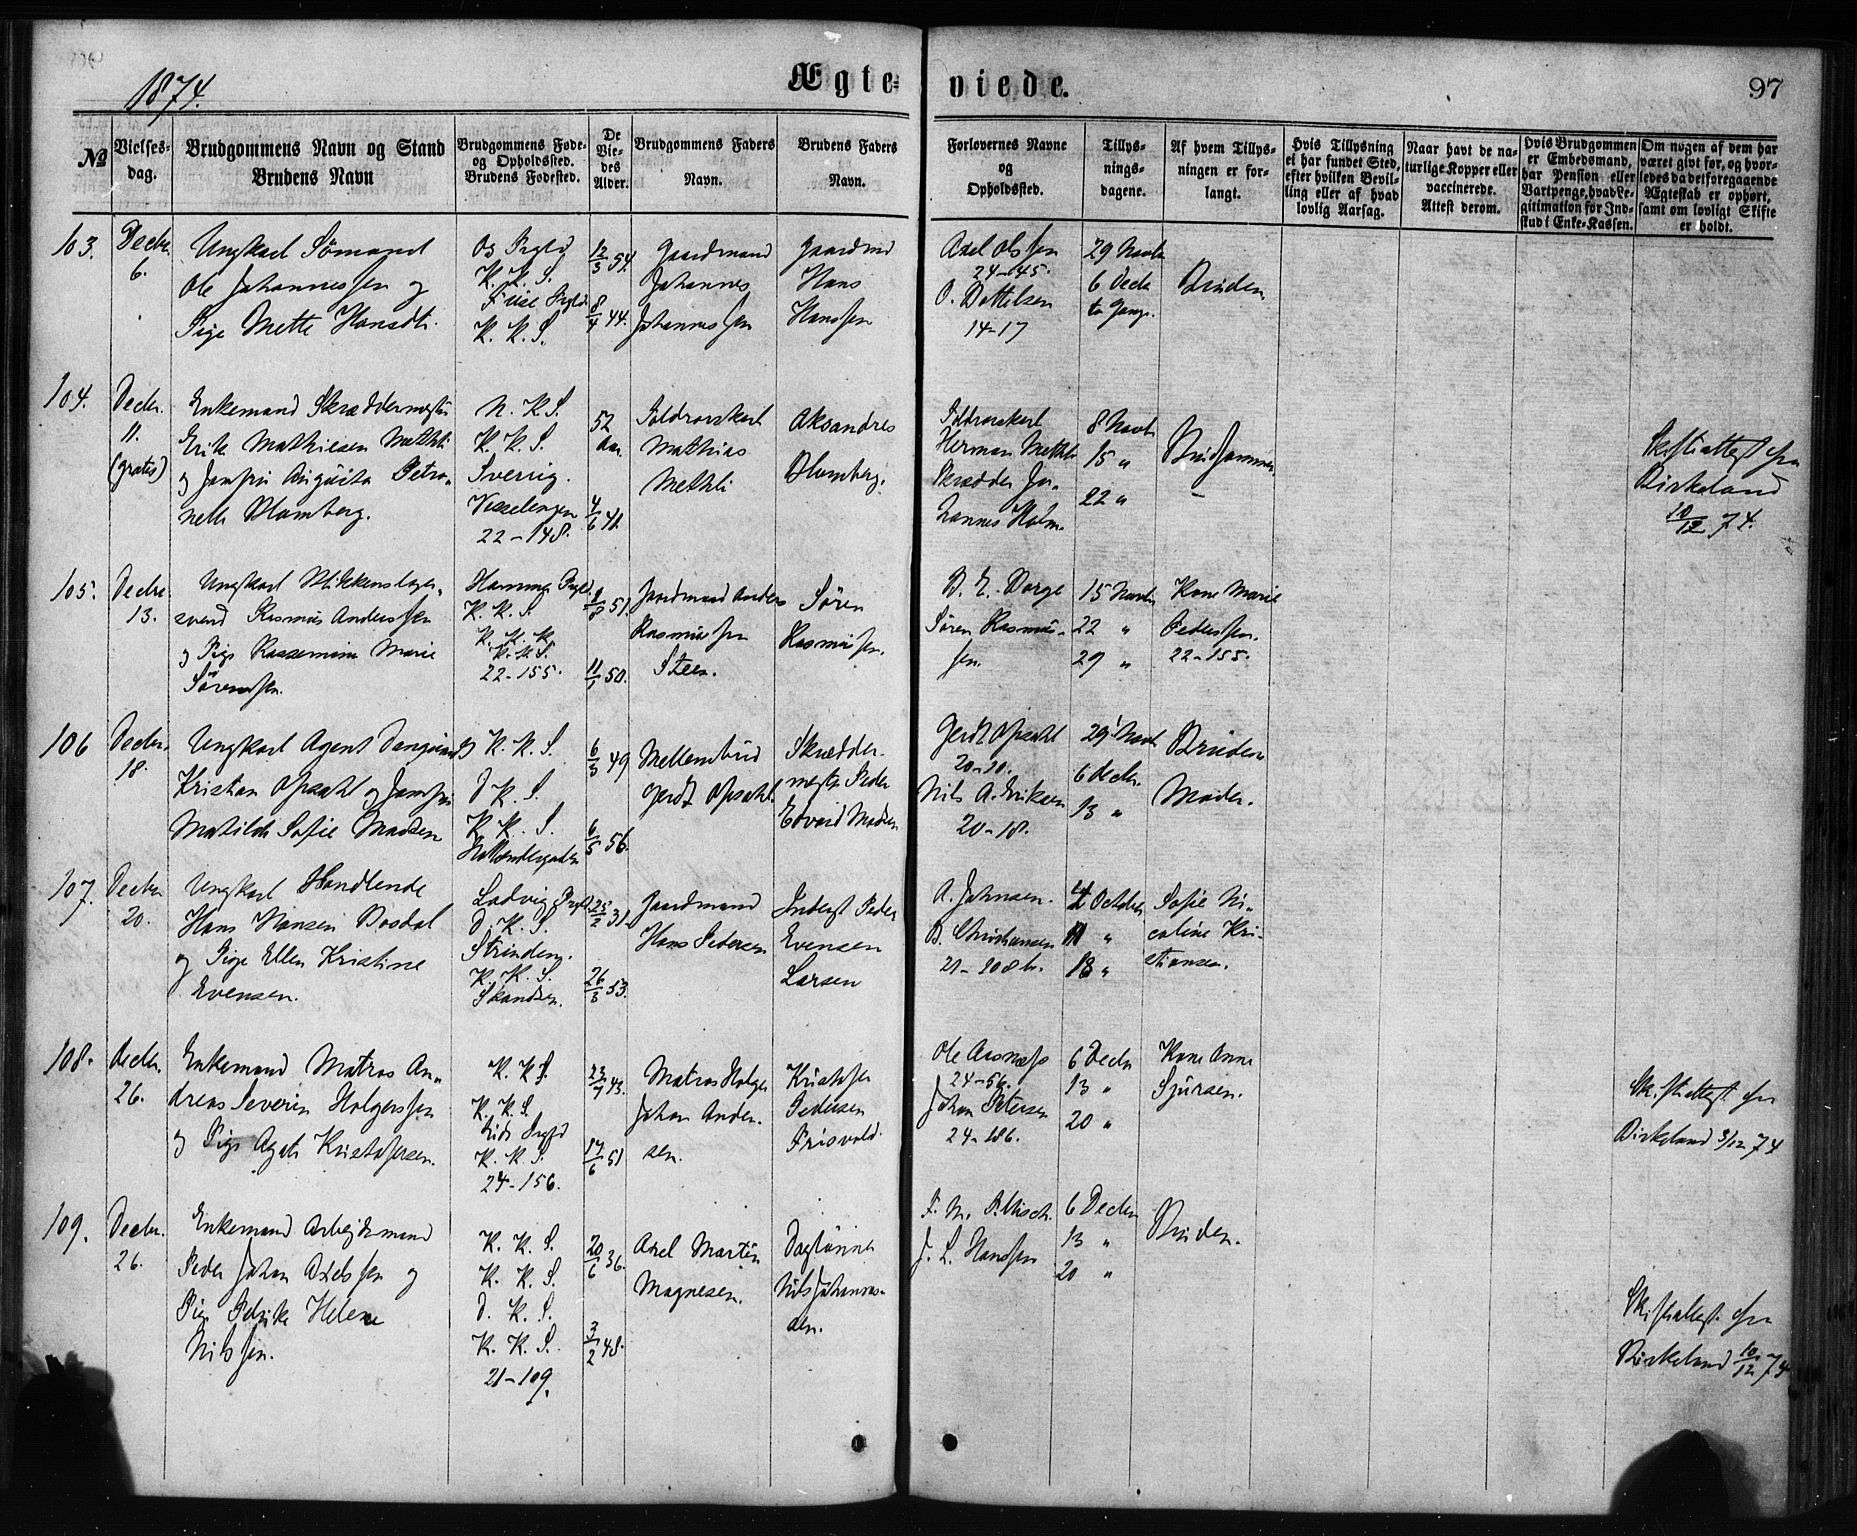 1874.
Ægte=
viede.
97
No
Vielses-
dag.
Brudgommens Navn og Stand
Brudens Navn
Brudgommens Føde-
og Opholdssted.
Brudens Fødested.
De
Vie-
des
Alder.
Brudgommens Faders
Navn.
Brudens Faders
Navn.
Forlovernes Navne
og
Opholdssted.
Tillys-
nings-
dagene.
Af hvem Tillys-
ningen er for-
langt.
Hvis Tillysning
ei har fundet Sted,
efter hvilken Bevil-
ling eller af hvad
lovlig Aarsag.
Naar havt de na-
turlige Kopper eller
vaccinerede.
Attest derom.
Hvis Brudgommen
er Embedsmand,
har Pension eller
Vartpenge, hvad Le-
gitimation for Ind-
skud i Enke-Kassen.
Om nogen af dem har
været givt før, og hvor-
ledes da det foregaaende
Ægteskab er ophørt,
samt om lovligt Skifte
er holdt.
103.
Decbr.
6.
Ungkarl Sømand
Ole Johannessen og
Pige Mette Hansdtr.
Os Prgld
K. K. S.
K. K. S.
12/3 54.
8/4 44.
Gaardmand
Johannes
Johannessen
Gaardmd
Hans
Hanssen
Axel Olsen
24-45.
O. Dettelsen
14-17
29 Novbr
6 Decbr
to Gange.
Bruden.
104.
Decbr.
11.
(gratis)
Enkemand Skræddermester
Erik Mathiesen Methli
og Jomfru Augusta Petro-
nelle Blomberg.
N. K. S.
K. K. S.
Sverrig.
22-148.
52
Aar
4/6 41.
Mathias
Methli
Blomberg.
Herman Methli
Skrædder Jo-
hannes Holm.
8 Novbr
15 "
22 "
Brudgommen
Skifteattest fra
Birkeland
10/12 74.
105.
Decbr
13.
Ungkarl Blikkenslager-
svend Rasmus Anderssen
og Pige Rassemine Marie
Sørensen.
Hammer Prgld
K. K. S.
K. K. K.
K. K. S.
22-155.
1/8 51.
11/1 50.
Gaardmand Anders
Rasmussen
Steen.
Søren
Rasmussen.
B. E. Dorge
Søren Rasmus-
sen.
15 Novbr
22 "
29 "
Kone Marie
Pederssen.
22-155.
106
Decbr.
18.
Ungkarl Agent
Kristian Opsahl og Jomfru
Matilde Sofie Madsen
K. K. S.
D K. S.
K. K. S.
Hollændergaden
6/3 49
6/5 56.
Gerdt Opsahl.
Skrædder-
mester Peder
Edvard Madsen
Gerdt Opsahl
20-20.
Nils A. Eriksen
20-18.
29 Novbr
6 Decbr.
13 "
Brudens
Moder.
107.
Decbr.
20.
Ungkarl Handlende
Hans Hansen Dosdal
og Pige Ellen Kristine
Evensen.
Ladvig Prgld
D. K. S.
Strinden.
K. K. S.
Skandsen.
25/2 31.
26/3 53.
Gaardmand
Hans Pedersen
Inderst Peder
Evensen
Larsen
A. Johnsen.
B. Christiansen
21-208 b.
4 October
11 "
18 "
Sofie Ni-
coline Kri-
stiansen.
108.
Decbr.
26.
Enkemand Matros An-
dreas Severin Holgerssen
og Pige Agate Kristofersen.
K. K S.
K. K S.
K. K. S.
24-156.
23/7 43.
17/6 51
Matros Holger
Johan Ander-
sen.
Kristofer
Pedersen
Frisvold.
Ole Aasnæss
24-56.
Johan Petersen
24-186.
6 Decbr
13 "
20 "
Kone Anne
Sjursen.
Skifteattest fra
Birkeland 3/12 74
109.
Decbr.
26.
Enkemand Arbeidsmand
Peder Johan Axelssen og
Pige Petrike Helene
Nilssen.
K. K. S.
K. K. S.
D. K. S.
K. K. S.
21-109.
20/6 36.
3/2 48.
Axel Martin
Magnesen.
Daglønner
Nils Johannes-
sen.
J. L. Hanssen
6 Decbr
13 "
20 "
Bruden.
Skifteattest fra
Birkeland 10/12 74